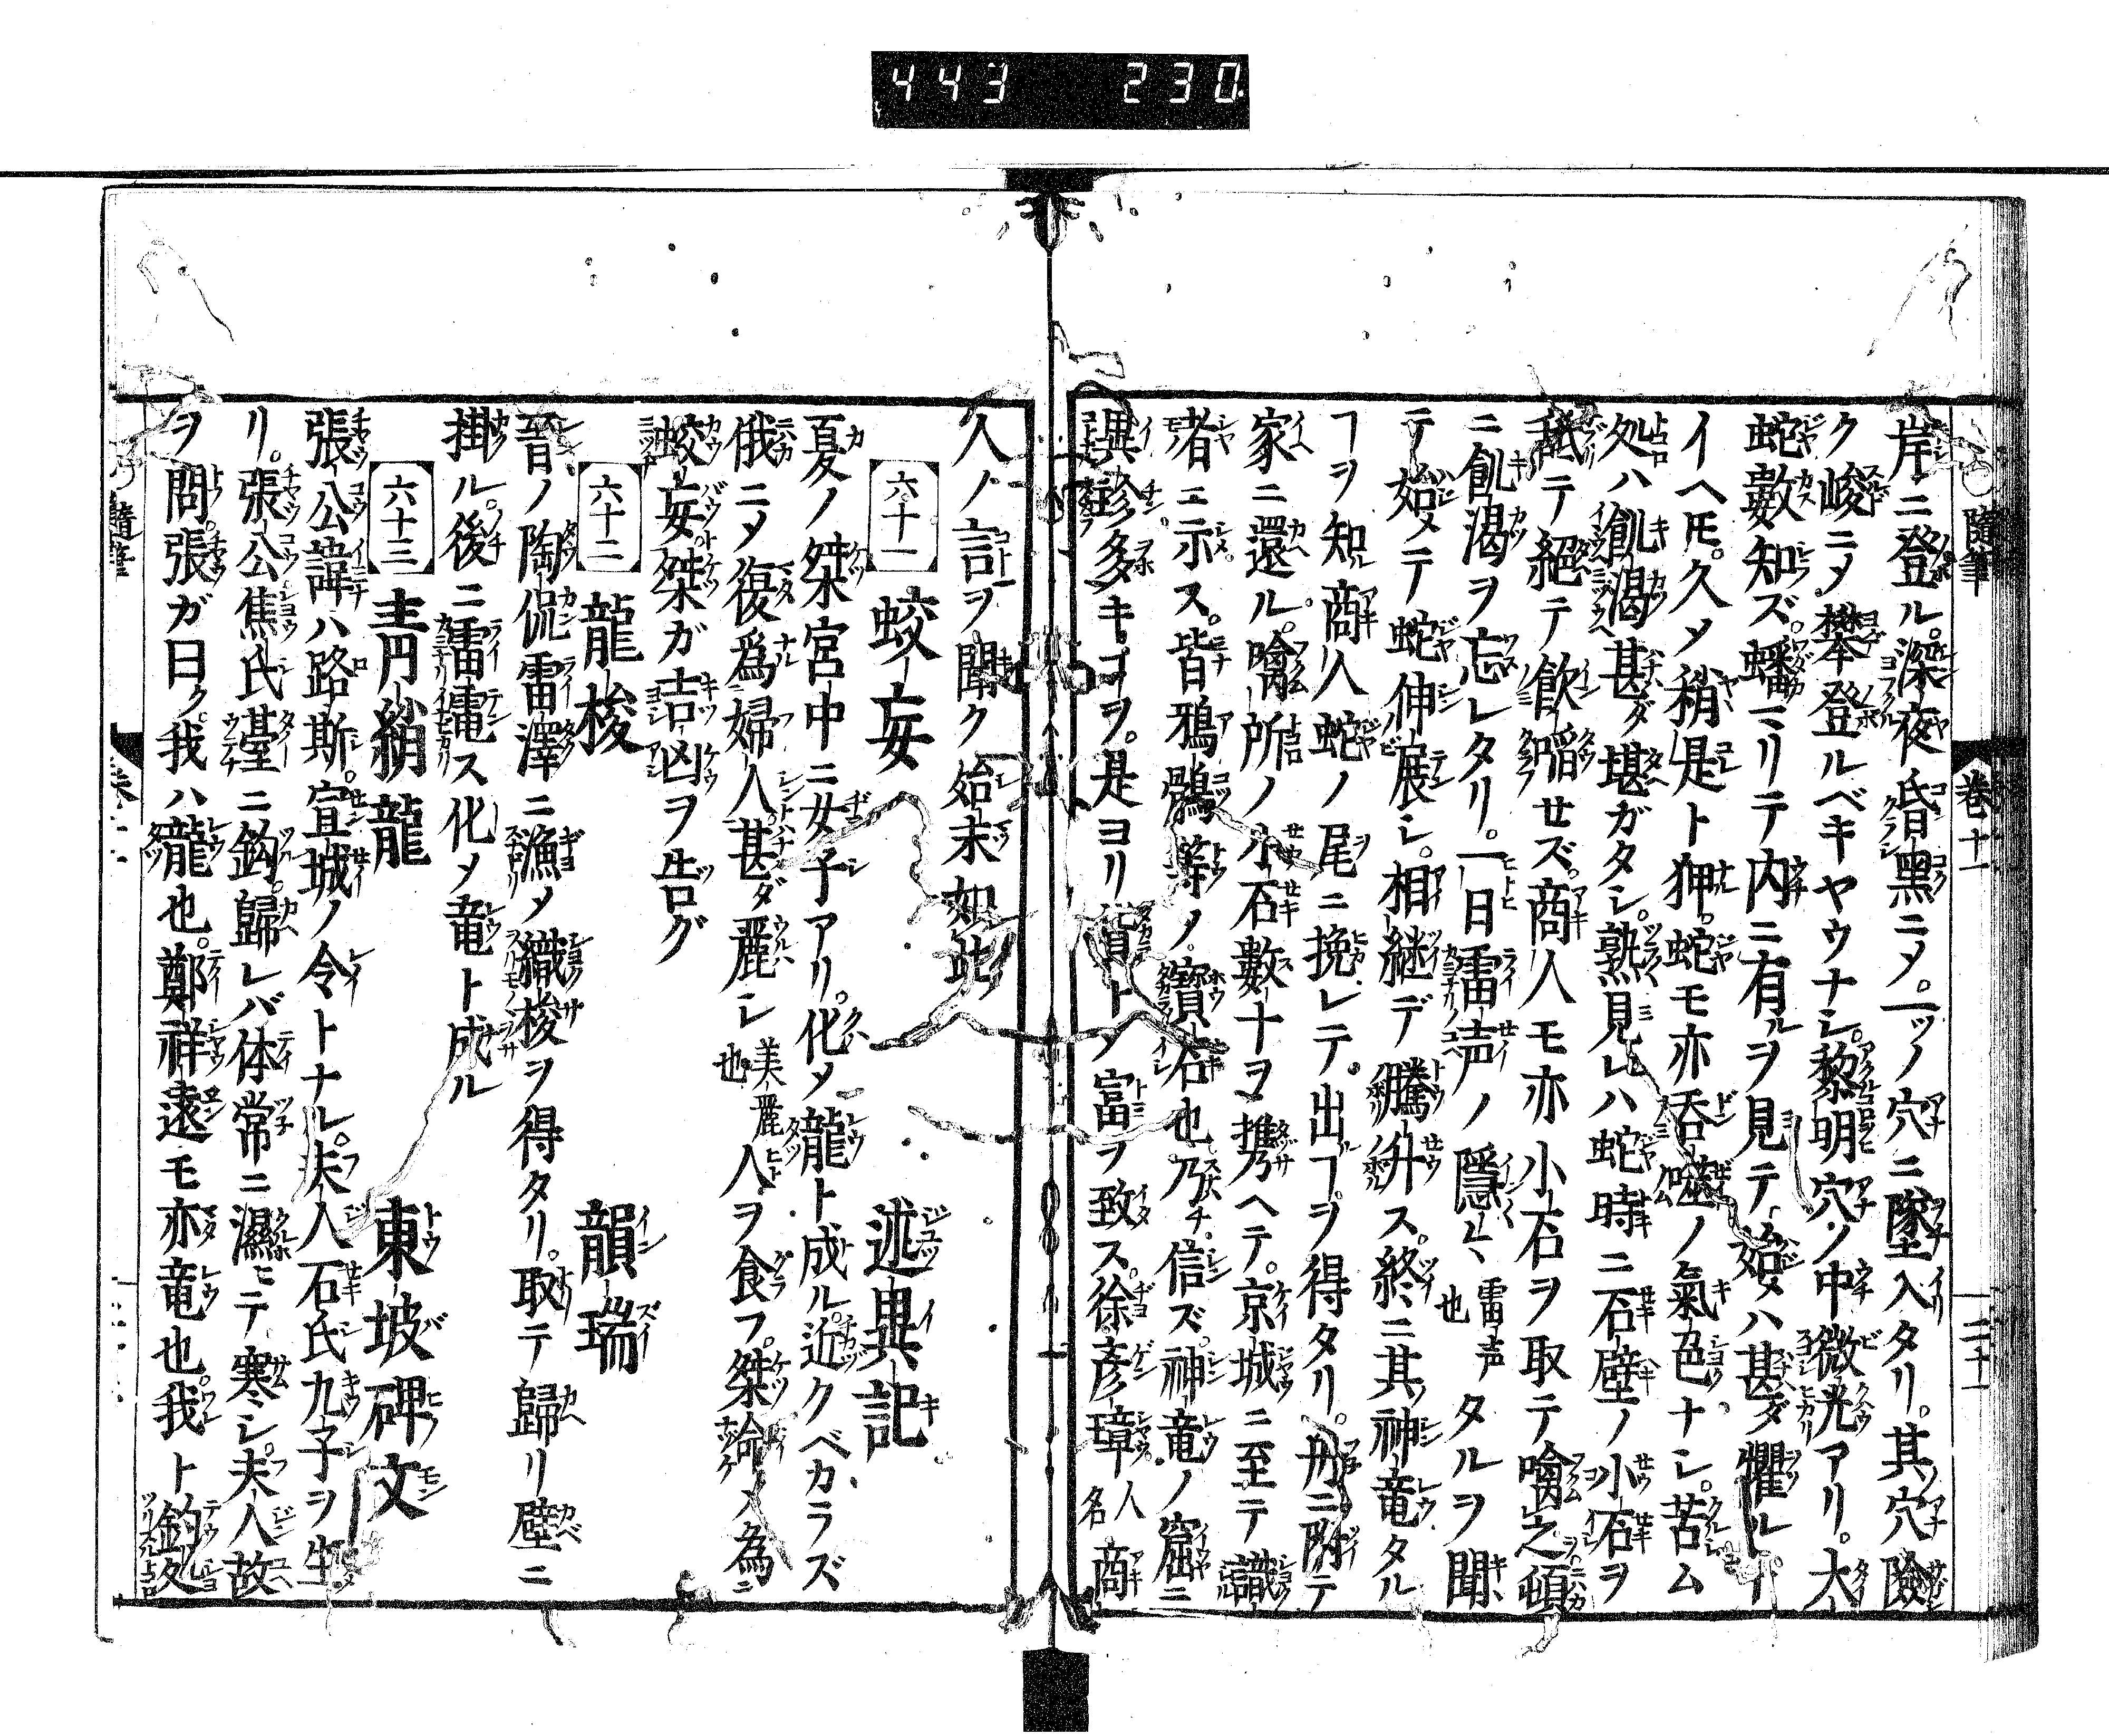 443 230
隨筆 巻十一 二十一
岸ニ登ル。深夜昏黒ニメ。一ッノ穴ニ墜入タリ。其穴險
ク峻ニメ攀登ルベキヤウナシ。黎明穴ノ中微光アリ。大
蛇數知ズ。蟠リテ内ニ有ルヲ見テ始メハ甚ダ懼ルト
イヘ𪜈。久メ稍是ト狎。蛇モ亦吞噬ノ氣色ナシ。苦ム
処ハ飢渴甚ダ堪ガタシ。熟見レハ蛇時ニ石壁ノ小石ヲ
舐テ絕テ飲啗セズ。商人モ亦小石ヲ取テ噙之頓
ニ飢渴ヲ忘レタリ。一日雷声ノ隱〻雷声也タルヲ聞
テ始メテ蛇伸展シ。相継デ騰升ス。終ニ其神竜タル
ヿヲ知商人蛇ノ尾ニ挽レテ。出ルヿヲ得タリ。舟ニ附テ
家ニ還ル。噙所ノ小石數十ヲ携ヘテ。京城ニ至テ識
者ニ示ス。皆鴉鶻等ノ寶石也乃チ信ズ神竜ノ窟ニ
異珍多キヿヲ。是ヨリ貨トメ富ヲ致ス。徐彦璋人名商
人ノ言ヲ聞ク始末如此
六十一 蛟妾 述異記
夏ノ桀宮中ニ女子アリ。化メ龍ト成ル。近クベカラズ
俄ニメ復為婦人甚ダ麗シ美麗也人ヲ食フ。桀命メ為ニ
蛟妾。桀ガ吉凶ヲ告グ
六十二 龍梭 韻瑞
晋ノ陶侃雷澤ニ漁メ織梭ヲ得タリ。取テ歸リ壁ニ
掛ル。後ニ雷電ス化メ竜ト成ル
六十三 靑綃龍 東坡碑文
張公諱ハ路斯。宣城ノ令トナル。夫人石氏九子ヲ生
リ。張公焦氏䑓ニ釣。歸レバ体常ニ濕ヒテ寒シ。夫人故
ヲ問。張ガ曰ク。我ハ龍也。鄭祥遠モ亦竜也。我ト釣処